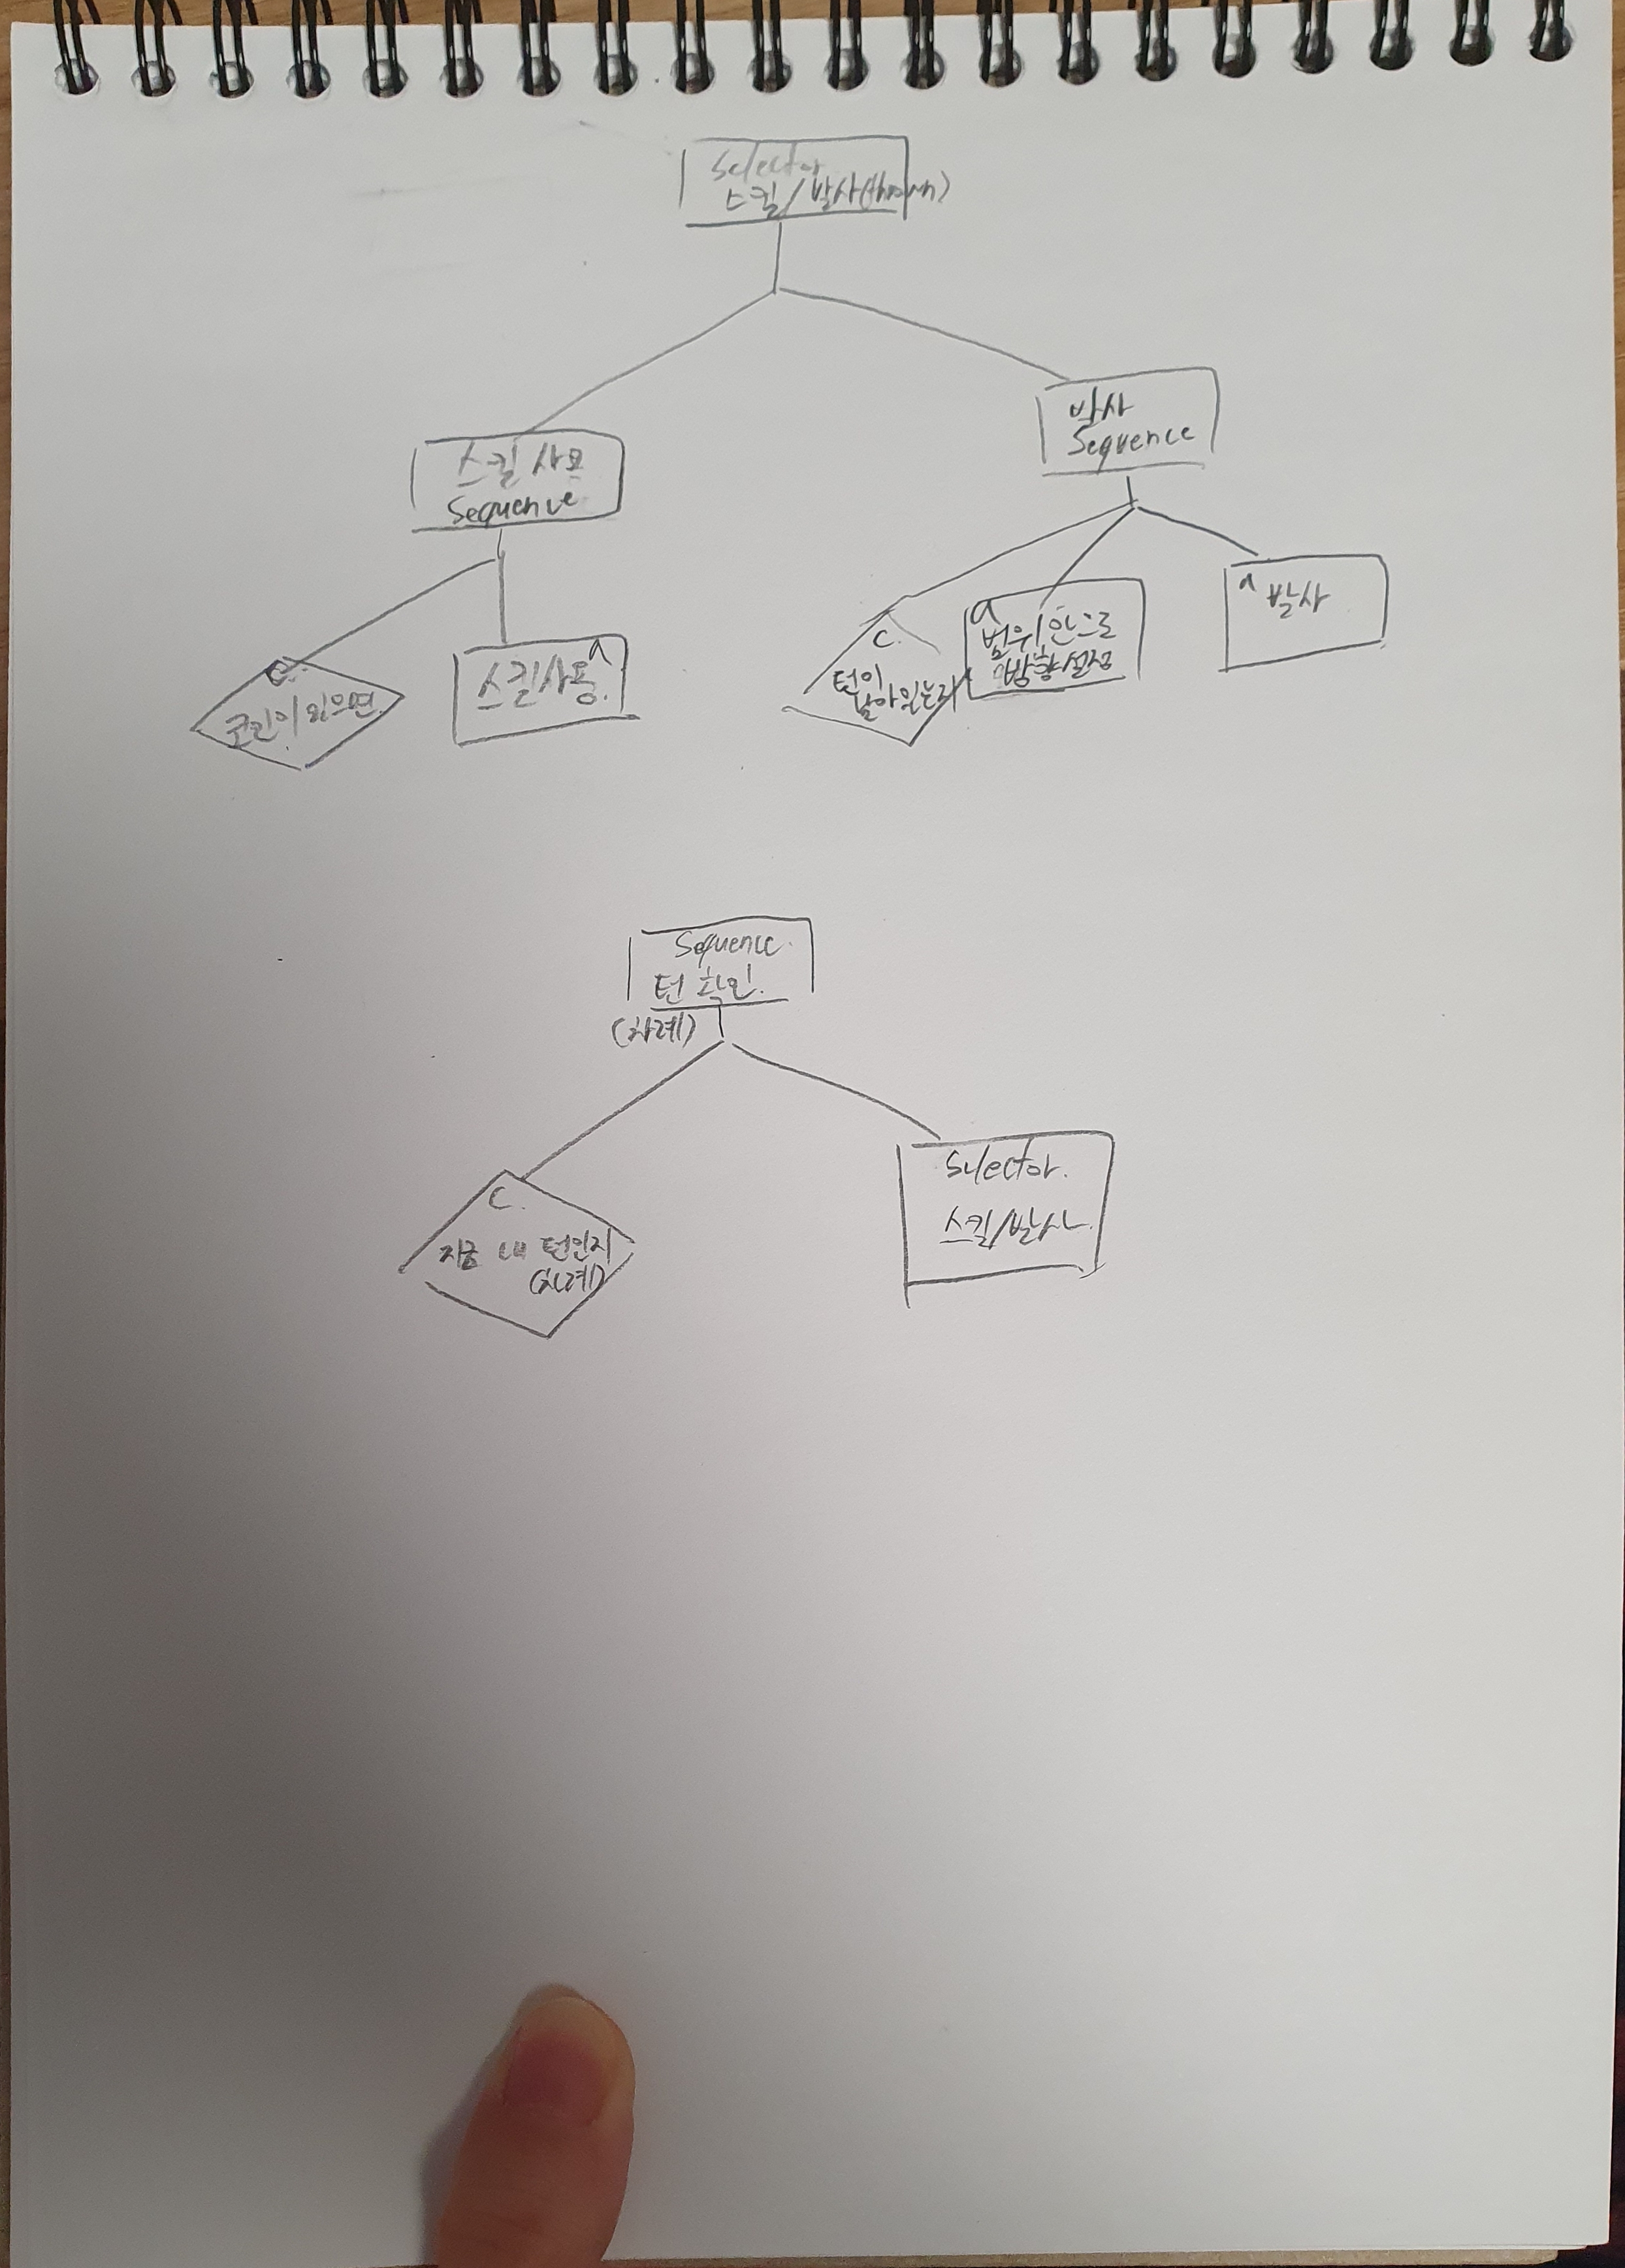 Selector
스킬/발사
발사
Sequence
스킬 사용
Sequence
C.
코인이 있으면
a
스킬사용.
C.
턴이
남아있는지
a
범위 안으로
방향설정
a 발사
Sequence.
턴 확인.
(차례)
C.
지금 내 턴인지
(차례)
Selector.
스킬/발사.